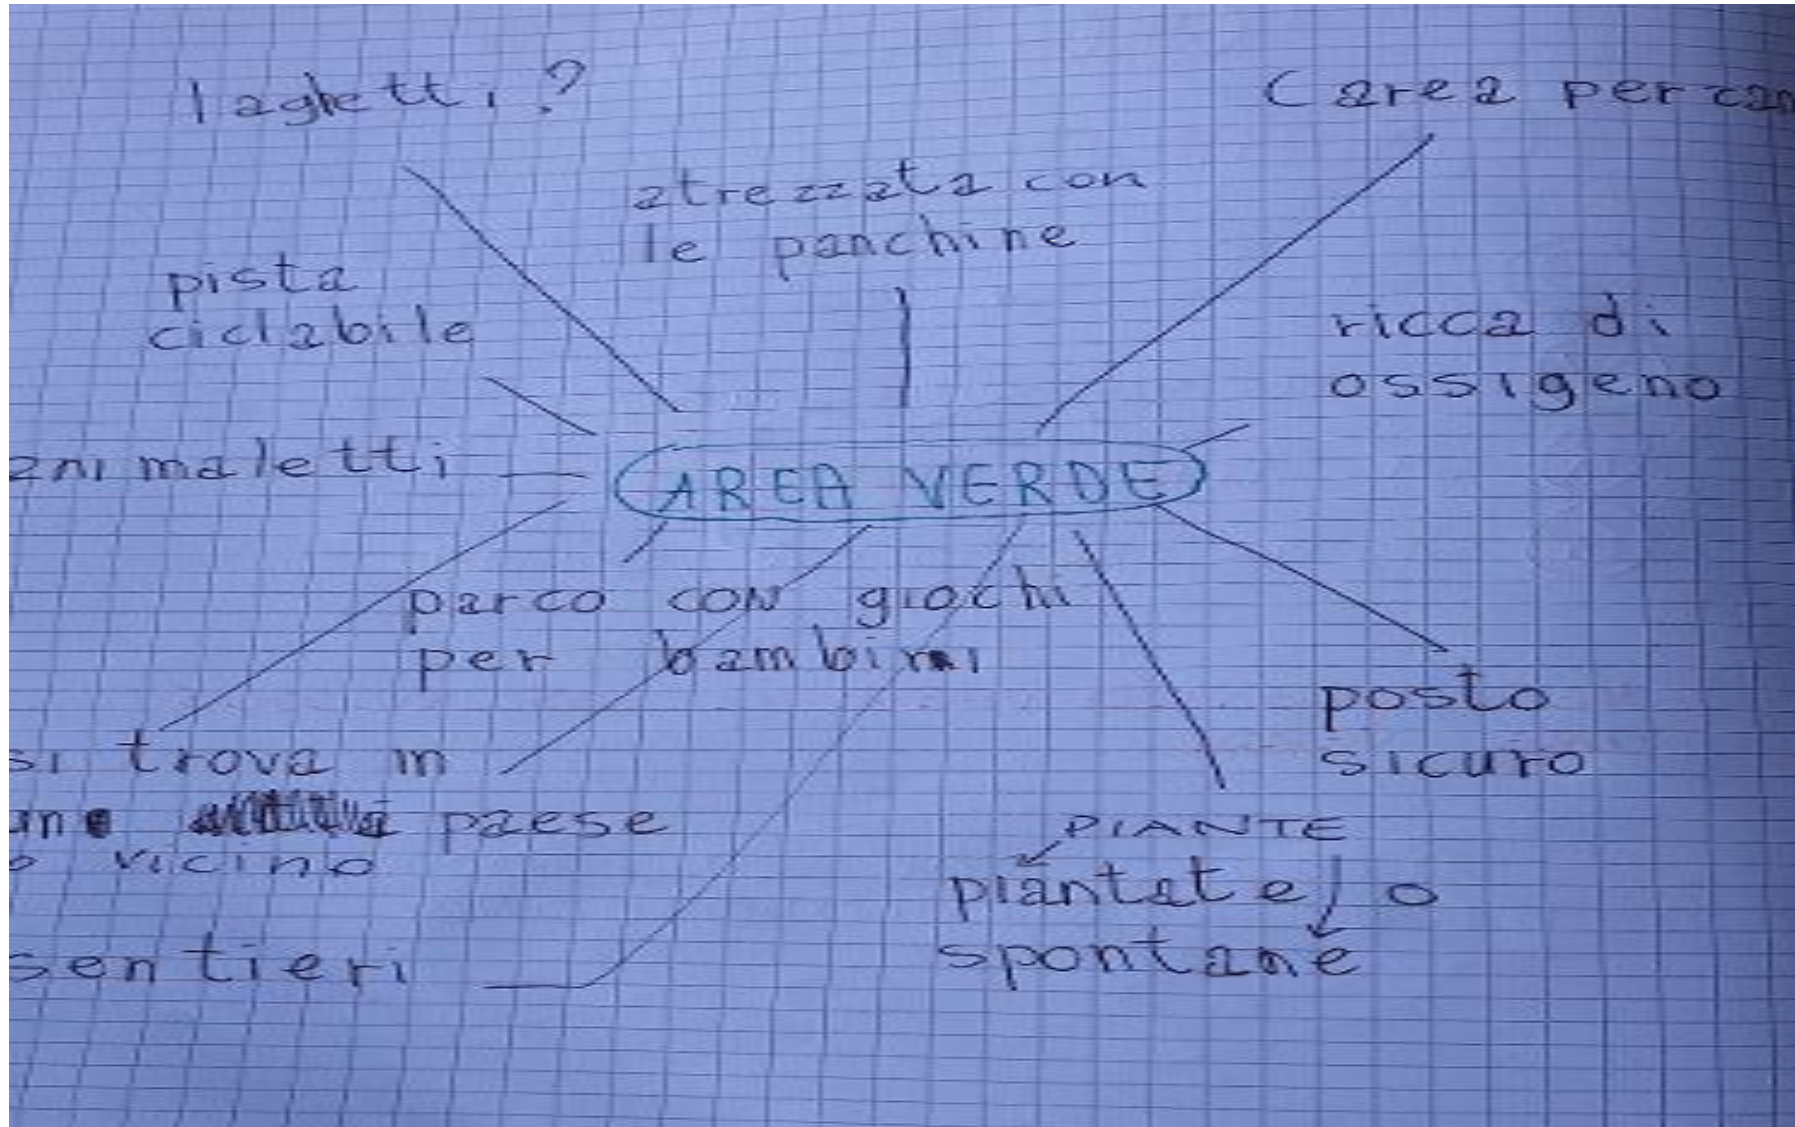 laghetti?
(area per can
atrezzata con
le panchine
pista
ciclabile
ricca di
ossigeno
animaletti
AREA VERDE
parco CON giochi
per bambini
posto
sicuro
si trova in
paese
o vicino
PIANTE
piantate o
spontane
sentieri